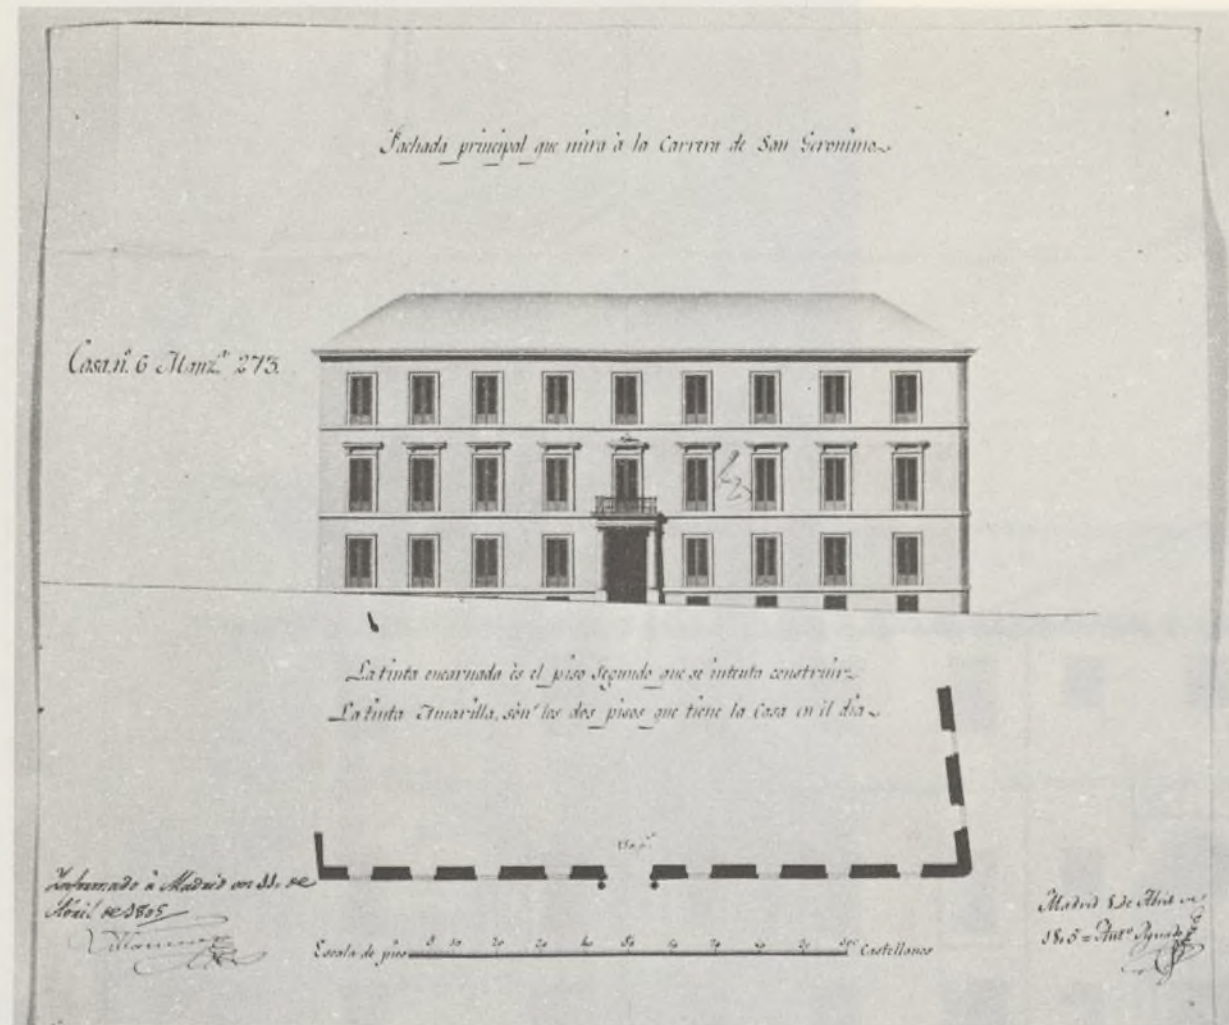 Fachada principal que mira à la Carrera de San Geronimo
Casa nº. 6 Manz.ª 273.
La tinta encarnada es el piso segundo que se intenta construir
La tinta Amarilla, son los dos pisos que tiene la Casa en el dia
Informado à Madrid en 11. de
Abril de 1805
Villanueva
Escala de pies 5 10 20 30 40 50 60 70 80 90 100 Castellanos
Madrid 8 de Abril de
1805 = Antº Aguado